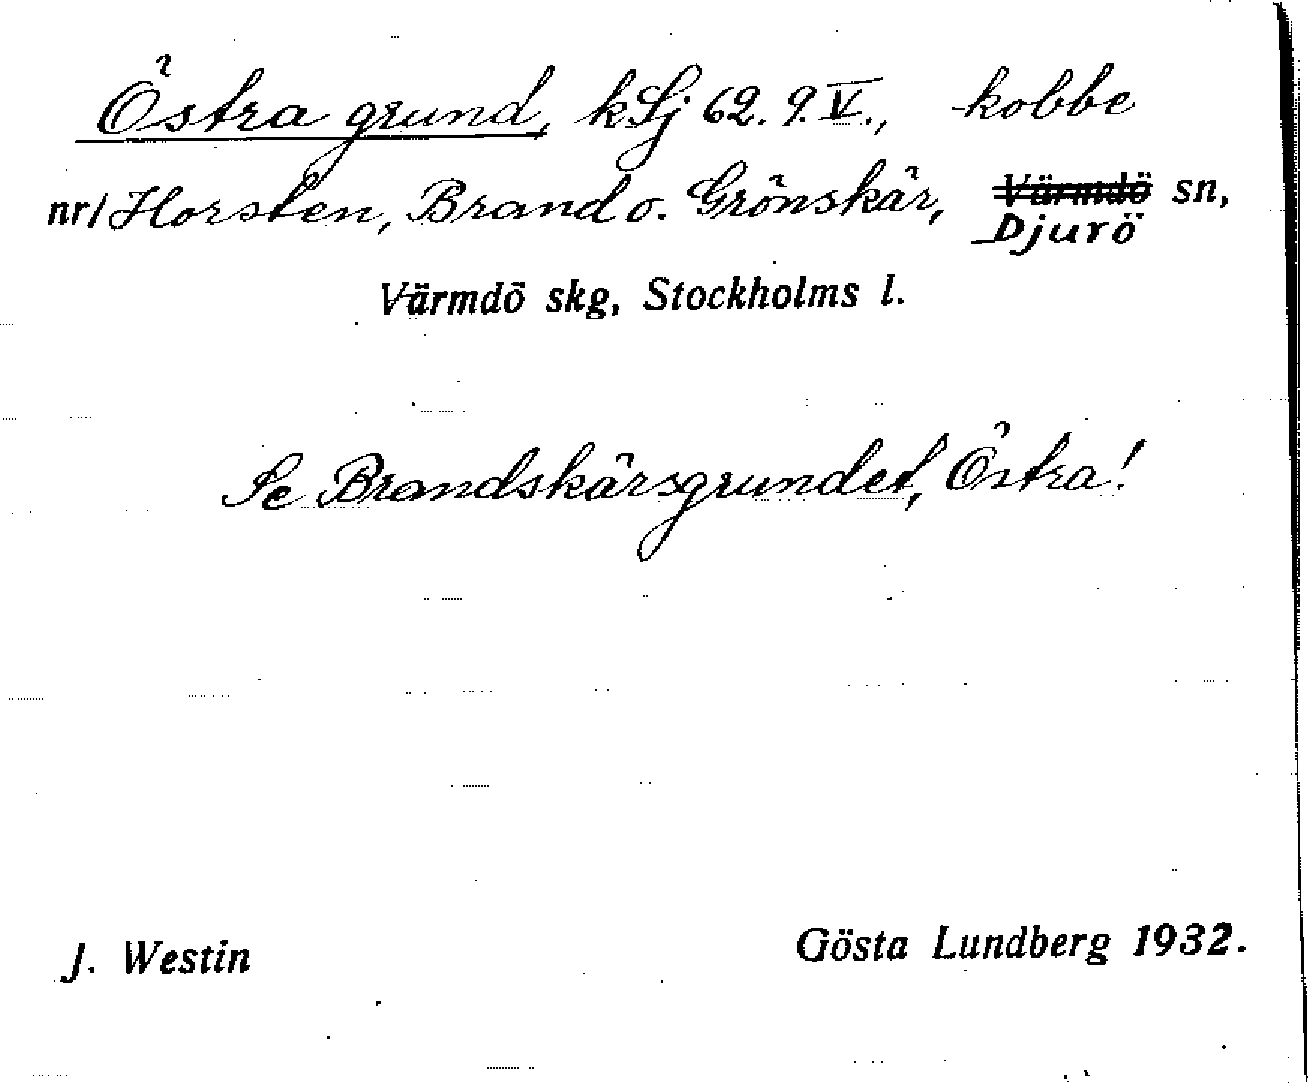 Östra grund, kSj 62. 9. V., kobbe
nr/ Horsten, Brand o. Grönskär, Värmdö sn,
Djurö
Värmdö skg, Stockholms l.
Se Brandskärsgrundet, Östra!
J. Westin Gösta Lundberg 1932.